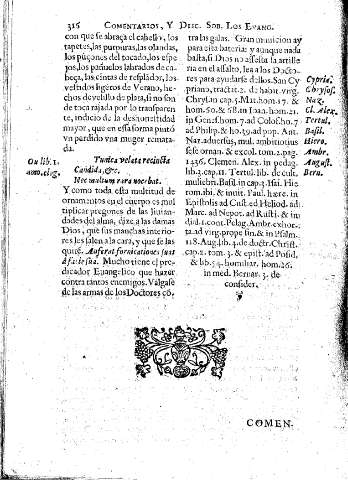 316 COMENTARIOS, Y DISC. SOB. LOS EVANG.
con que se abraça el cabello, los
tapetes, las purpuras, las olandas,
los puçones del tocado, los espe
jos, los pinsacros labrados de ca
beça, las cintas de resplādor, los
vestidos ligeros de Verano, he
chos de velillo de plata, si no son
de toca rajada por lo trasparen
te, indicio de la deshonestidad
mayor, que en essa forma pintò
vn perdido vna muger remata
da.
Tunica velata recincta
Candida, &c.
Nec multum rara nocebat.
Y como toda esta multitud de
ornamentos en el cuerpo es mul
tiplicar pregones de las liuian
dades del alma, dize a las damas
Dios, que sus manchas interio-
res les salen a la cara, y que se las
quite. Auferat fornicationes suas
à facie sua. Mucho tiene el pre-
dicador Euangelico que hazer
contra tantos enemigos. Valgase
de las armas de los Doctores cō,
Ou. lib. 1.
amo. eleg.
tra las galas. Gran municion ay
para esta bateria: y aunque nada
basta, si Dios no assesta la artille
ria en el assalto, lea a los Docto-
res para ayudarse dellos. San Cy
priano, tract. 2. de habit. virg.
Chrys. in cap. 5. Mat. hom. 17. &
hom. 50. & 18. in Ioan. hom. 21.
in Genes. hom. 7. ad Coloss. ho. 7
ad Philip. & ho. 39. ad pop. Ant.
Naz. aduersus, mul. ambitiosius
sese ornan. & excol. tom. 2. pag.
1436. Clemen. Alex. in pedag.
lib. 3. cap. 11. Tertul. lib. de cult.
muliebri. Basil. in cap. 3. Isai. Hie
rom. ibi. & inuit. Paul. haere. in
Epistolis ad Cust. ad Heliod. ad
Marc. ad Nepot. ad Rusti. & in
did. 1. coot. Pelag. Ambr. exhor.
ta. ad virg. prope fin. & in Psalm.
118. Aug. lib. 4. de doctr. Christ.
cap. 2. tom. 3. & epist. ad Possid.
& lib. 54. homiliar. hom. 26.
in med. Bernar. 3. de
consider.
Cypria.
Chrysos.
Naz.
Cl. Alex.
Tertul.
Basil.
Hiero.
Ambr.
August.
Bern.
COMEN.